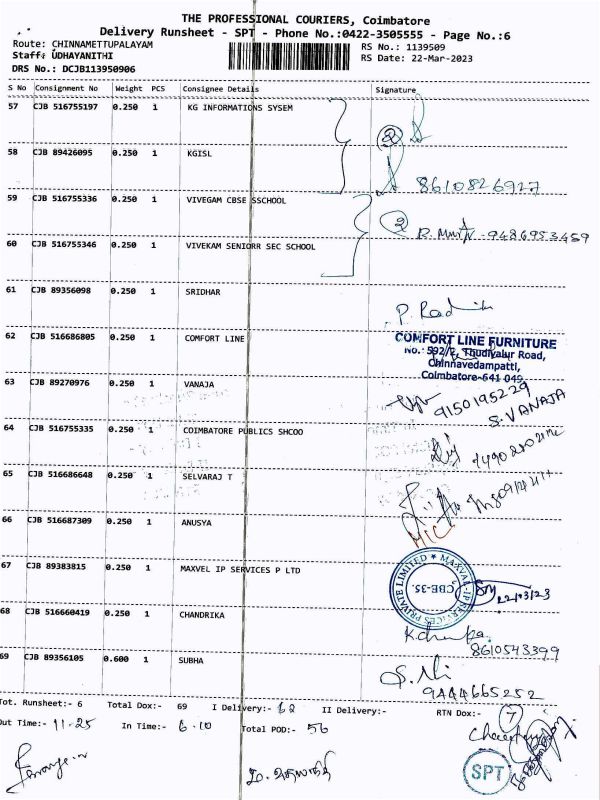 THE PROFESSIONAL COURIERS, Coimbatore
Delivery Runsheet - SPT - Phone No.:0422-3505555 - Page No.:6
Route: CHINNAMETTUPALAYAM RS No.: 1139509
Staff: UDHAYANITHI RS Date: 22-Mar-2023
DRS No.: DCJB113950906
S No Consignment No Weight PCS Consignee Details Signature
57 CJB 516755197 0.250 1 KG INFORMATIONS SYSEM
2
58 CJB 89426095 0.250 1 KGISL
8610826927
59 CJB 516755336 0.250 1 VIVEGAM CBSE SSCHOOL
2
9486953459
60 CJB 516755346 0.250 1 VIVEKAM SENIORR SEC SCHOOL
61 CJB 89356098 0.250 1 SRIDHAR
62 CJB 516686805 0.250 1 COMFORT LINE
COMFORT LINE FURNITURE
No. 592/ Thudiyalur Road,
Chinnavedampatti,
Coimbatore-641 049
63 CJB 89270976 0.250 1 VANAJA
9150195229
S. VANAJA
64 CJB 516755335 0.250 1 COIMBATORE PUBLICS SHCOO
65 CJB 516686648 0.250 1 SELVARAJ T
66 CJB 516687309 0.250 1 ANUSYA
67 CJB 89383815 0.250 1 MAXVEL IP SERVICES P LTD
MAXVAL - IP SERVICES PRIVATE LIMITED
CBE-35.
22/03/23
68 CJB 516660419 0.250 1 CHANDRIKA
8610543399
69 CJB 89356105 0.600 1 SUBHA
9444665252
Tot. Runsheet:- 6 Total Dox:- 69 I Delivery:- 62 II Delivery:- RTN Dox:- 7
Out Time:- 11-25 In Time:- 6-10 Total POD:- 56
SPT